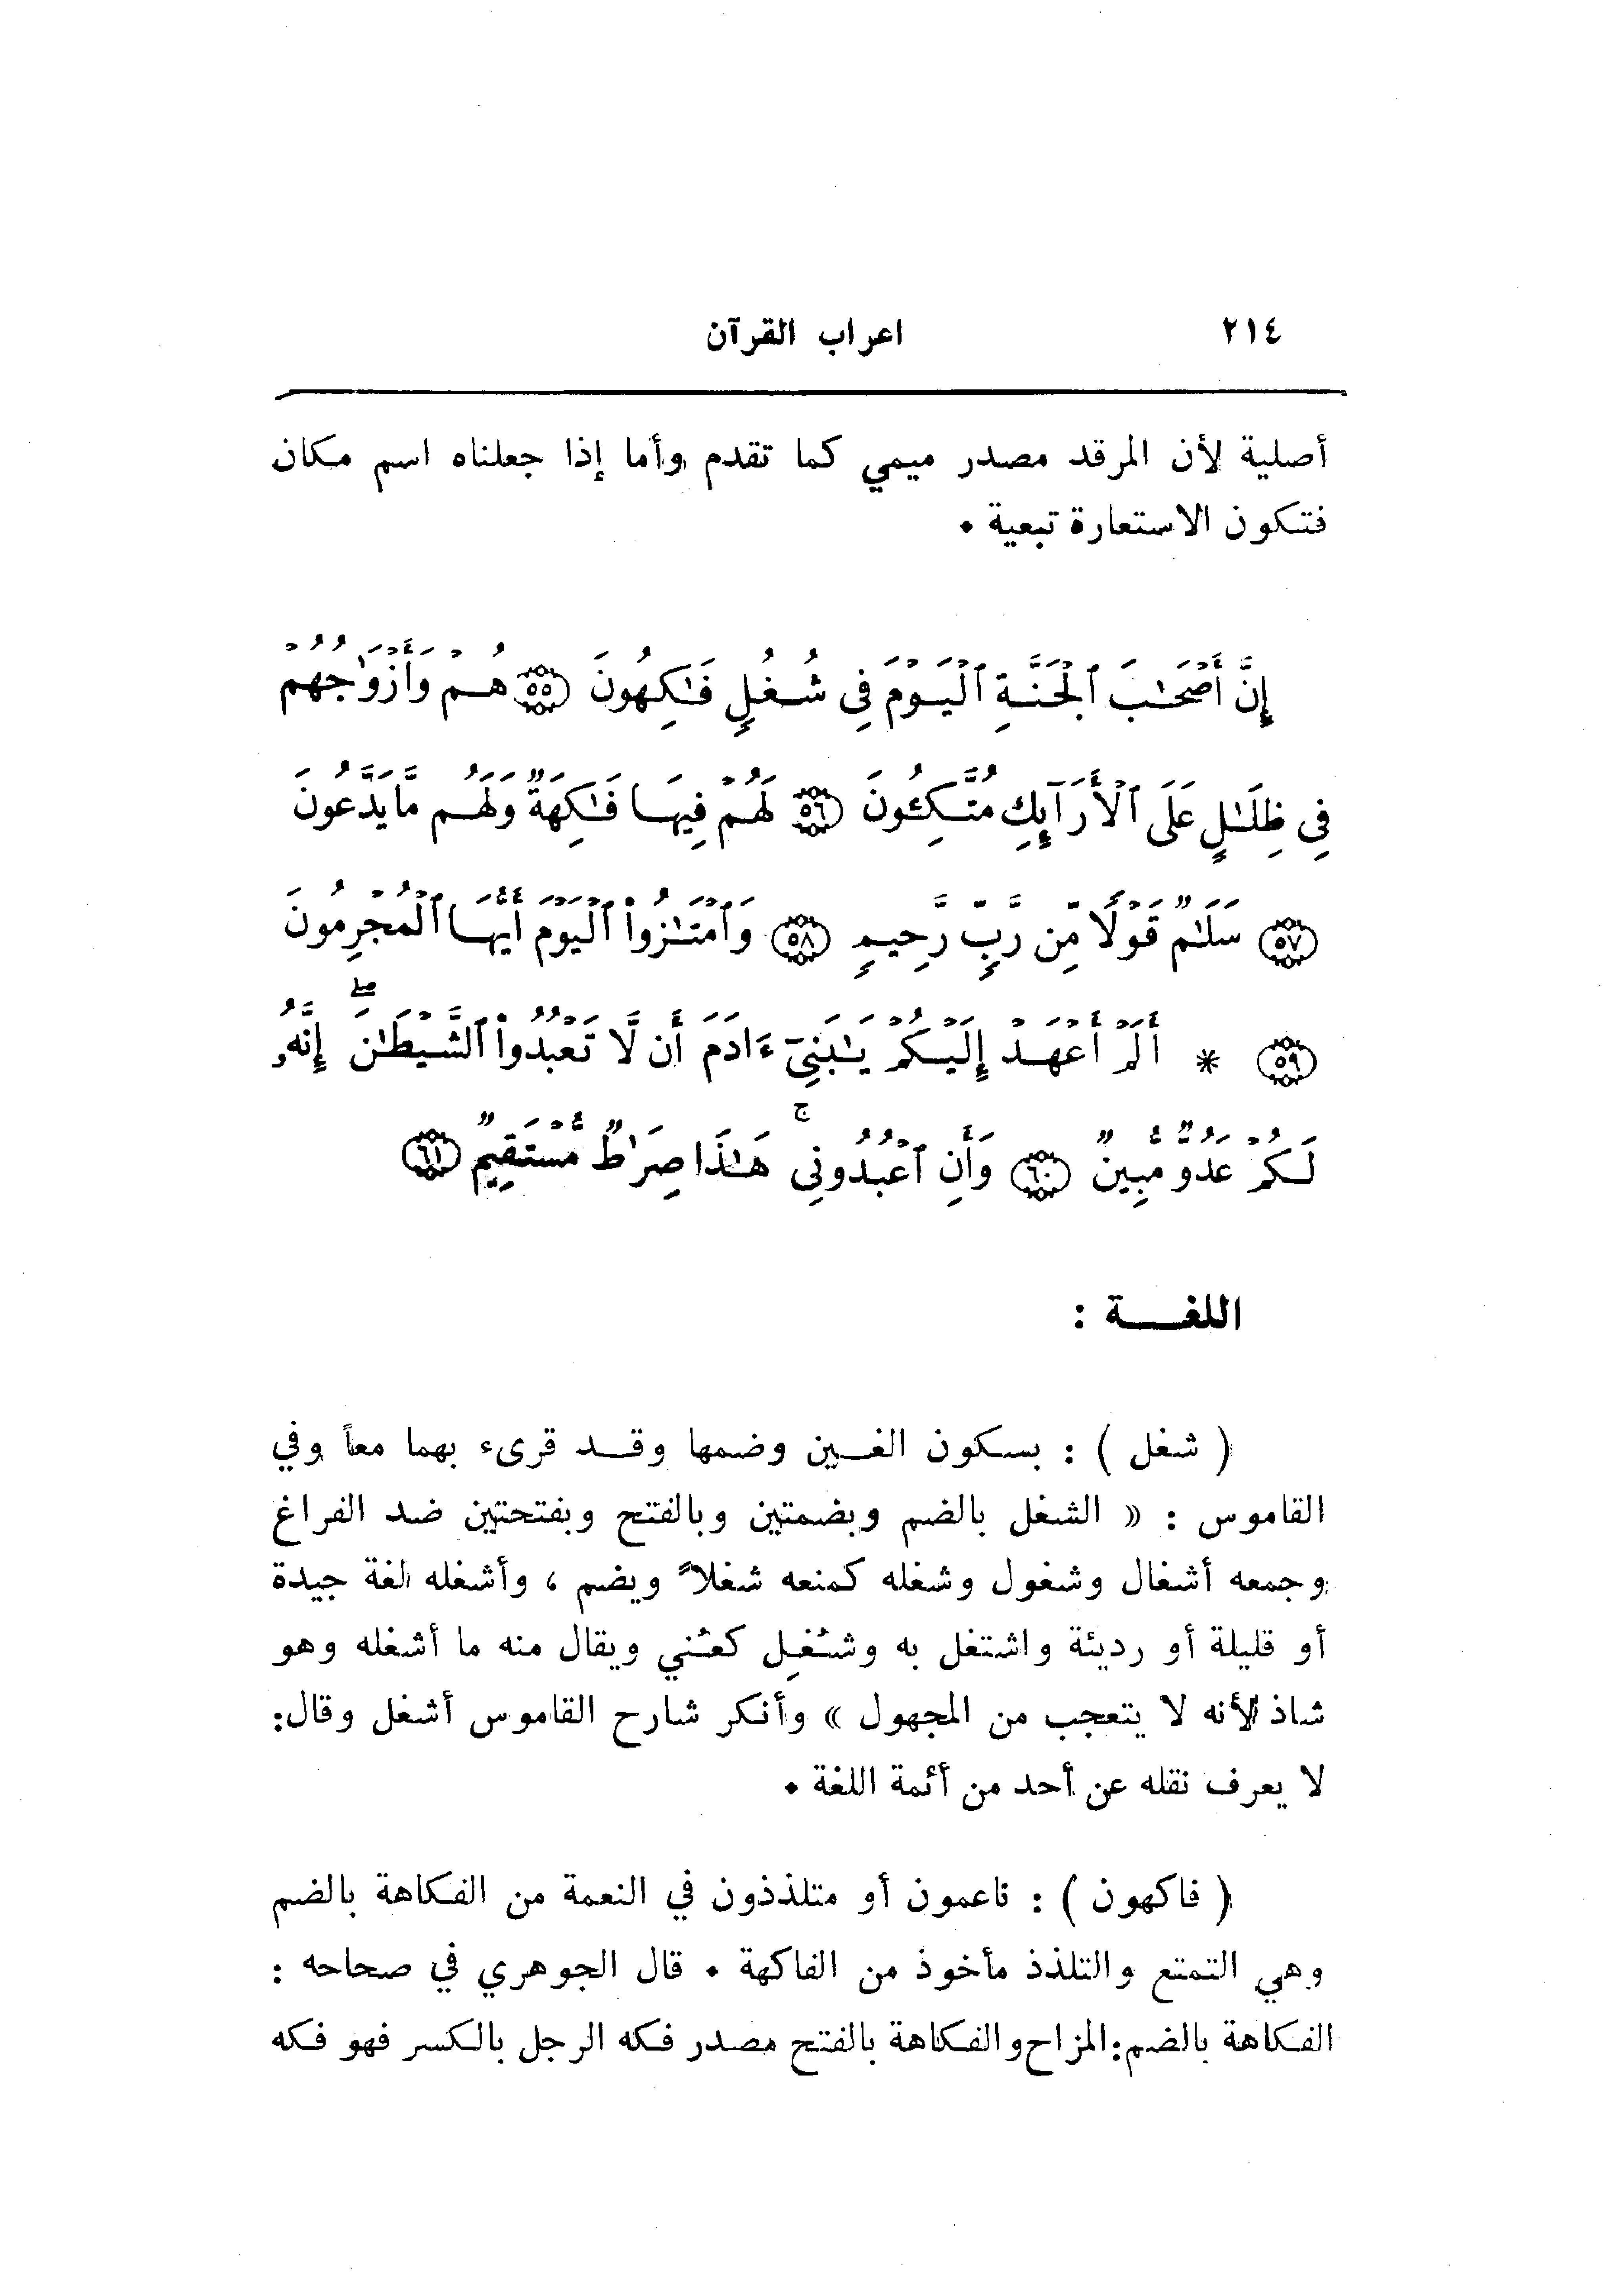 ٢١٤ اعراب القرآن
أصلية لأن المرقد مصدر ميمي كما تقدم وأما إذا جعلناه اسم مكان
فتكون الاستعارة تبعية .
إِنَّ أَصْحَٰبَ ٱلْجَنَّةِ ٱلْيَوْمَ فِى شُغُلٍ فَٰكِهُونَ ﴿٥٥﴾ هُمْ وَأَزْوَٰجُهُمْ
فِى ظِلَٰلٍ عَلَى ٱلْأَرَآئِكِ مُتَّكِـُٔونَ ﴿٥٦﴾ لَهُمْ فِيهَا فَٰكِهَةٌ وَلَهُم مَّا يَدَّعُونَ
﴿٥٧﴾ سَلَٰمٌ قَوْلًا مِّن رَّبٍّ رَّحِيمٍ ﴿٥٨﴾ وَٱمْتَٰزُوا۟ ٱلْيَوْمَ أَيُّهَا ٱلْمُجْرِمُونَ
﴿٥٩﴾ * أَلَمْ أَعْهَدْ إِلَيْكُمْ يَٰبَنِىٓ ءَادَمَ أَن لَّا تَعْبُدُوا۟ ٱلشَّيْطَٰنَ ۖ إِنَّهُۥ
لَكُمْ عَدُوٌّ مُّبِينٌ ﴿٦٠﴾ وَأَنِ ٱعْبُدُونِى ۚ هَٰذَا صِرَٰطٌ مُّسْتَقِيمٌ ﴿٦١﴾
اللغـــة :
( شغل ) : بسكون الغين وضمها وقد قرىء بهما معاً وفي
القاموس : « الشغل بالضم وبضمتين وبالفتح وبفتحتين ضد الفراغ
وجمعه أشغال وشغول وشغله كمنعه شغلاً ويضم ، وأشغله لغة جيدة
أو قليلة أو رديئة واشتغل به وشُغِل كعُني ويقال منه ما أشغله وهو
شاذ لأنه لا يتعجب من المجهول » وأنكر شارح القاموس أشغل وقال:
لا يعرف نقله عن أحد من أئمة اللغة .
( فاكهون ) : ناعمون أو متلذذون في النعمة من الفكاهة بالضم
وهي التمتع والتلذذ مأخوذ من الفاكهة . قال الجوهري في صحاحه :
الفكاهة بالضم:المزاح والفكاهة بالفتح مصدر فكه الرجل بالكسر فهو فكه